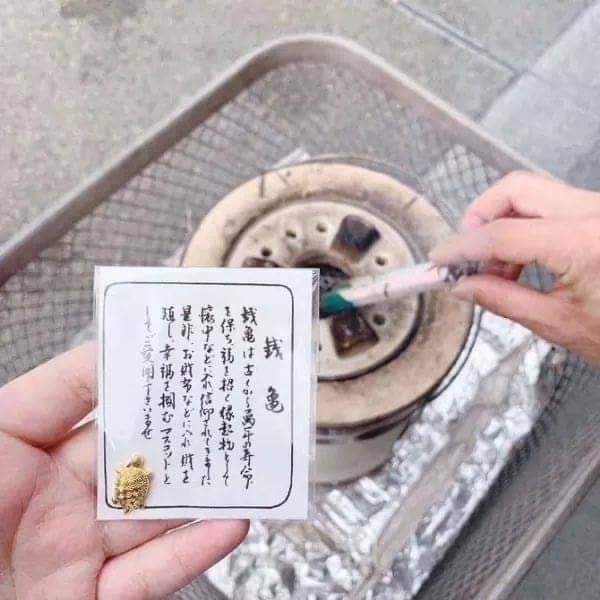 銭亀
銭亀は古くから萬年の寿命
を保ち、福を招く縁起物として
懐中などに入れ信仰されてきた
是非、お財布などに入れ財を
殖し、幸福を掴むマスコットと
してご愛用下さいませ